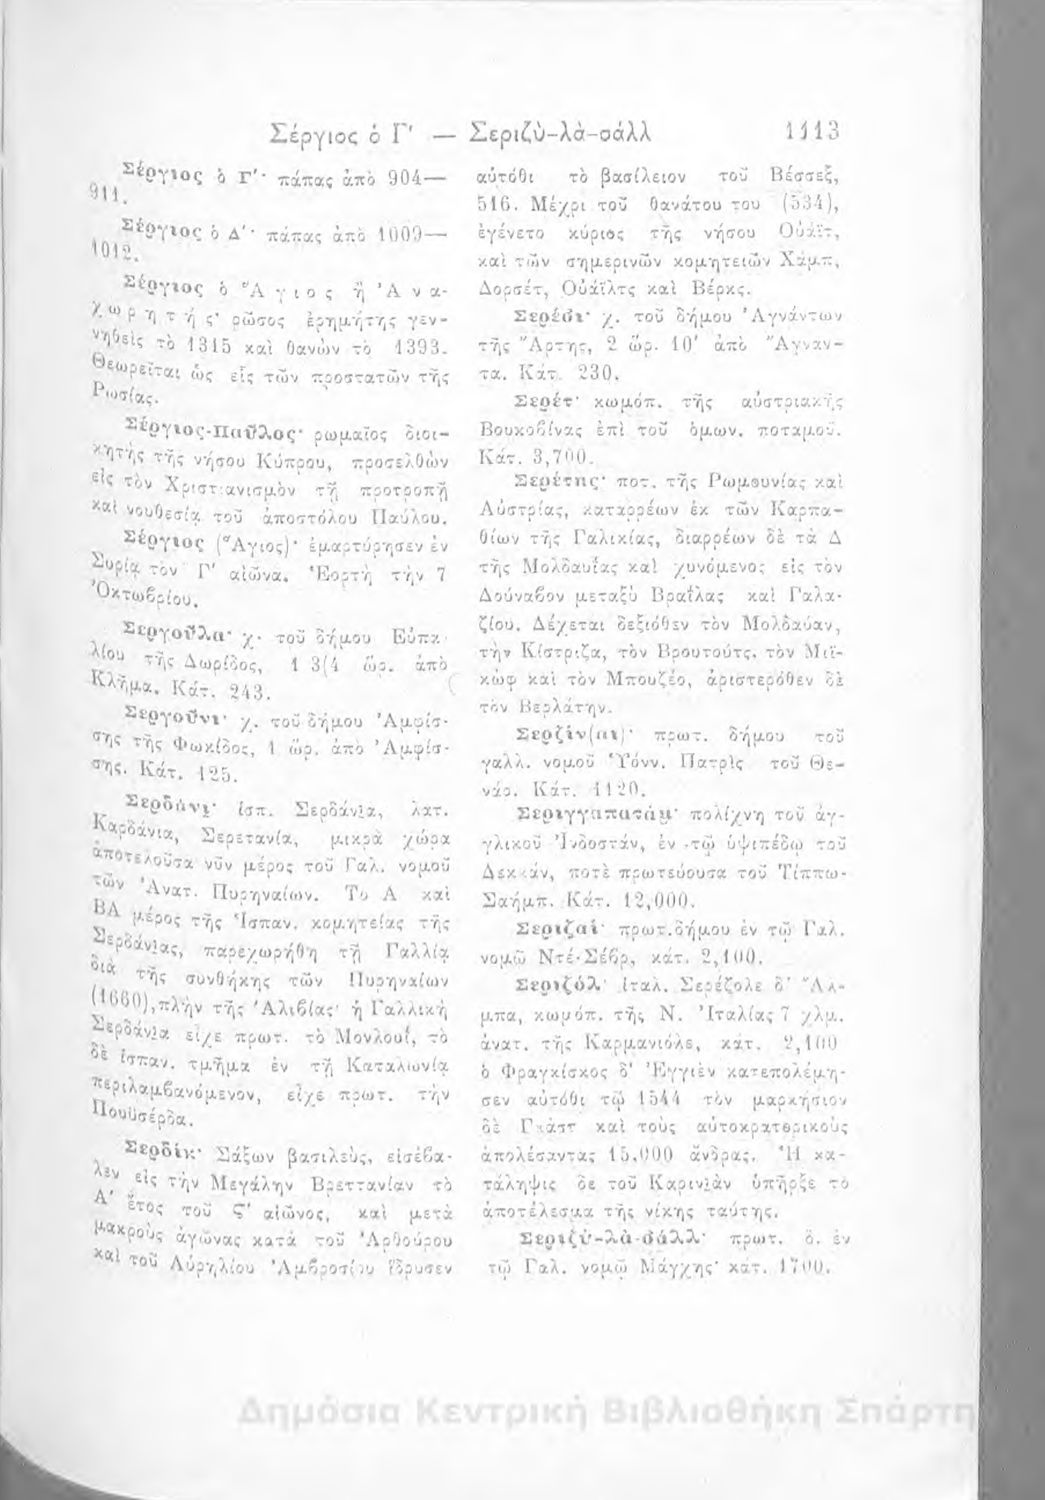 Σέργιος ὁ Γ' — Σεριζὺ-λὰ-σάλλ 1113
Σέργιος ὁ Γ'· πάπας ἀπὸ 904—
911.
Σέργιος ὁ Δ'· πάπας ἀπὸ 1009—
1012.
Σέργιος ὁ Ἅγιος ἢ Ἀνα-
χωρητής· ρῶσος ἐρημήτης γεν-
νηθεὶς τὸ 1315 καὶ θανὼν τὸ 1393.
Θεωρεῖται ὡς εἷς τῶν προστατῶν τῆς
Ρωσίας.
Σέργιος-Παῦλος· ρωμαῖος διοι-
κητὴς τῆς νήσου Κύπρου, προσελθὼν
εἰς τὸν Χριστιανισμὸν τῇ προτροπῇ
καὶ νουθεσίᾳ τοῦ ἀποστόλου Παύλου.
Σέργιος (Ἅγιος)· ἐμαρτύρησεν ἐν
Συρίᾳ τὸν Γ' αἰῶνα. Ἑορτὴ τὴν 7
Ὀκτωβρίου.
Σεργοῦλα· χ. τοῦ δήμου Εὐπα-
λίου τῆς Δωρίδος, 1 3(4 ὥρ. ἀπὸ
Κλῆμα. Κάτ. 243.
Σεργοῦνι· χ. τοῦ δήμου Ἀμφίσ-
σης τῆς Φωκίδος, 1 ὥρ. ἀπὸ Ἀμφίσ-
σης. Κάτ. 125.
Σερδάνι· ἱσπ. Σερδάνια, λατ.
Καρδάνια, Σερετανία, μικρὰ χώρα
ἀποτελοῦσα νῦν μέρος τοῦ Γαλ. νομοῦ
τῶν Ἀνατ. Πυρηναίων. Το Α καὶ
ΒΑ μέρος τῆς Ἱσπαν. κομητείας τῆς
Σερδάνιας, παρεχωρήθη τῇ Γαλλίᾳ
διὰ τῆς συνθήκης τῶν Πυρηναίων
(1660), πλὴν τῆς Ἀλιβίας· ἡ Γαλλικὴ
Σερδάνια εἶχε πρωτ. τὸ Μονλουΐ, τὸ
δὲ ἱσπαν. τμῆμα ἐν τῇ Καταλωνίᾳ
περιλαμβανόμενον, εἶχε πρωτ. τὴν
Πουϋσέρδα.
Σερδίκ· Σάξων βασιλεὺς, εἰσέβα-
λεν εἰς τὴν Μεγάλην Βρεττανίαν τὸ
Α' ἔτος τοῦ Ϛ' αἰῶνος, καὶ μετὰ
μακροὺς ἀγῶνας κατὰ τοῦ Ἀρθούρου
καὶ τοῦ Αὐρηλίου Ἀμβροσίου ἵδρυσεν
αὐτόθι τὸ βασίλειον τοῦ Βέσσεξ,
516. Μέχρι τοῦ θανάτου του (534),
ἐγένετο κύριος τῆς νήσου Οὐάϊτ,
καὶ τῶν σημερινῶν κομητειῶν Χάμπ,
Δορσέτ, Οὐάϊλτς καὶ Βέρκς.
Σερέδι· χ. τοῦ δήμου Ἀγνάντων
τῆς Ἄρτης, 2 ὥρ. 10' ἀπὸ Ἄγναν-
τα. Κάτ. 230.
Σερέτ· κωμόπ. τῆς αὐστριακῆς
Βουκοβίνας ἐπὶ τοῦ ὁμων. ποταμοῦ.
Κάτ. 8,700.
Σερέτης· ποτ. τῆς Ρωμουνίας καὶ
Αὐστρίας, καταρρέων ἐκ τῶν Καρπα-
θίων τῆς Γαλικίας, διαρρέων δὲ τὰ Δ
τῆς Μολδαυΐας καὶ χυνόμενος εἰς τὸν
Δούναβον μεταξὺ Βραΐλας καὶ Γαλα-
ζίου. Δέχεται δεξιόθεν τὸν Μολδαύαν,
τὴν Κίστριζα, τὸν Βρουτούτς, τὸν Μιλ-
κὼφ καὶ τὸν Μπουζέο, ἀριστερόθεν δὲ
τὸν Βερλάτην.
Σερζίν(αι)· πρωτ. δήμου τοῦ
γαλλ. νομοῦ Ὑόνν. Πατρὶς τοῦ Θε-
νάρ. Κάτ. 1120.
Σεριγγαπατάμ· πολίχνη τοῦ ἀγ-
γλικοῦ Ἰνδοστάν, ἐν τῷ ὑψιπέδῳ τοῦ
Δεκκάν, ποτὲ πρωτεύουσα τοῦ Τίππω-
Σαήμπ. Κάτ. 12,000.
Σεριζαί· πρωτ. δήμου ἐν τῷ Γαλ.
νομῷ Ντέ-Σέβρ, κάτ. 2,100.
Σεριζόλ· ἰταλ. Σερέζολε δ' Ἄλ-
μπα, κωμόπ. τῆς Ν. Ἰταλίας 7 χλμ.
ἀνατ. τῆς Καρμανιόλε, κάτ. 2,100
ὁ Φραγκίσκος δ' Ἐγγιὲν κατεπολέμη-
σεν αὐτόθι τῷ 1544 τὸν μαρκήσιον
δὲ Γκάστ καὶ τοὺς αὐτοκρατορικοὺς
ἀπολέσαντας 15,000 ἄνδρας. Ἡ κα-
τάληψις δε τοῦ Καρινιὰν ὑπῆρξε τὸ
ἀποτέλεσμα τῆς νίκης ταύτης.
Σεριζὺ-λὰ-σάλλ· πρωτ. δ. ἐν
τῷ Γαλ. νομῷ Μάγχης· κάτ. 1700.
Δημόσια Κεντρική Βιβλιοθήκη Σπάρτη